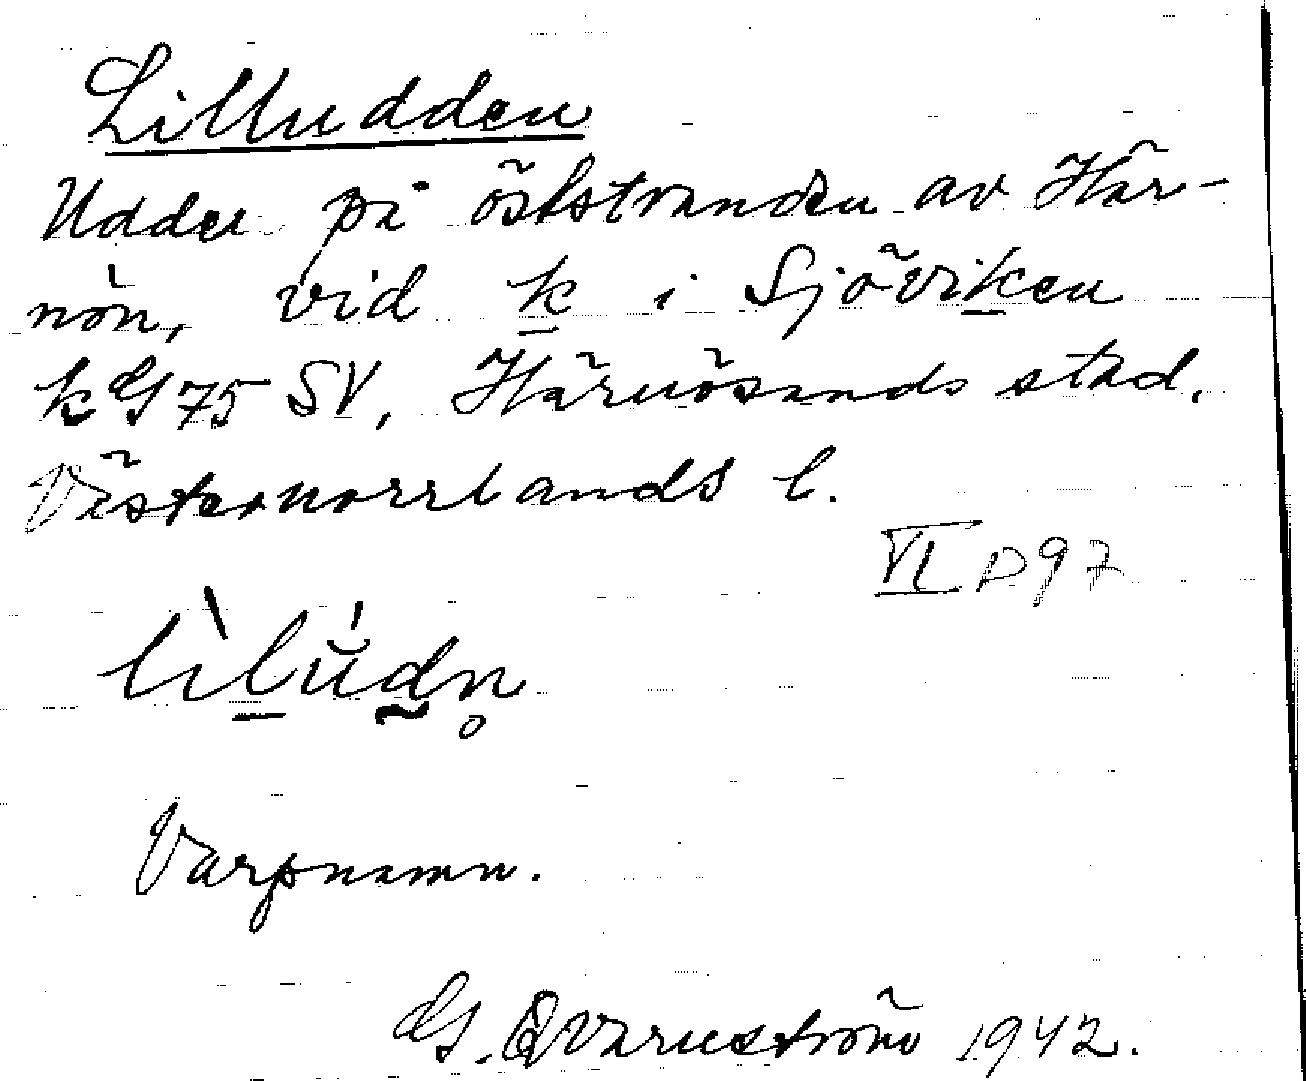 Lilludden
Udde på öststranden av Här-
nön, vid k i Sjöviken
kG 75 SV, Härnösands stad.
Västernorrlands l.
VI D 97
lìlúdn̥
Varpnamn.
G. Qvarnström 1942.